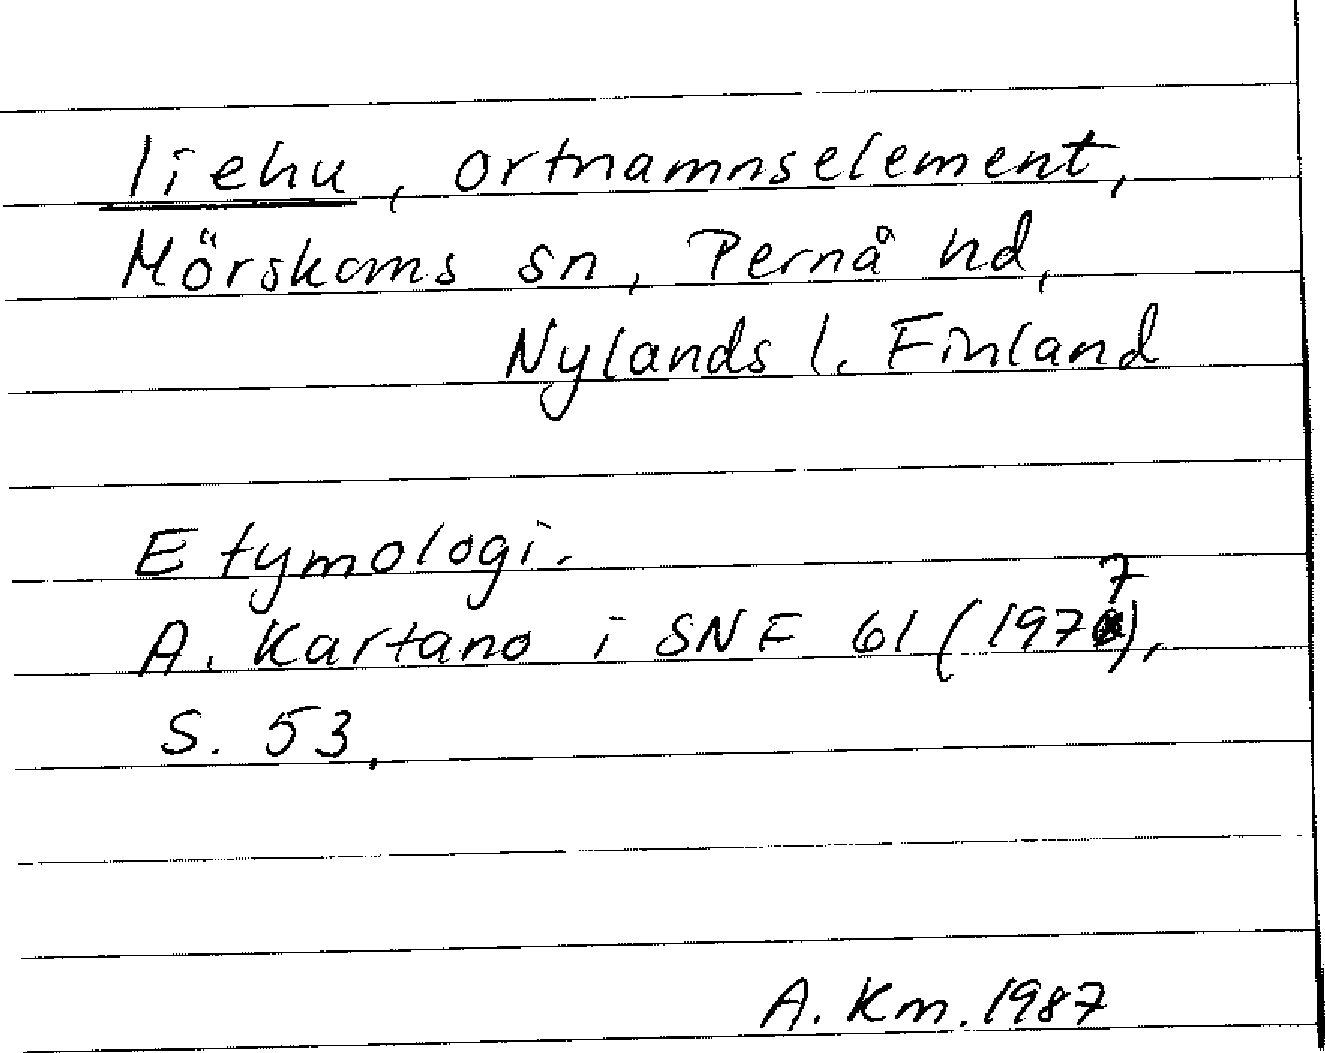 liehu, ortnamnselement,
Mörskoms sn, Pernå hd,
Nylands l. Finland
Etymologi.
A. Kartano i SNF 61 (1977),
S. 53.
A. Km. 1987